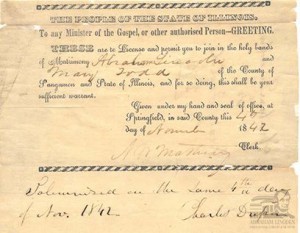 THE PEOPLE OF THE STATE OF ILLINOIS.
To any Minister of the Gospel, or other authorised Person—GREETING.
THESE are to License and permit you to join in the holy bands
of Matrimony Abraham Lincoln and
Mary Todd of the County of
Sangamon and State of Illinois, and for so doing, this shall be your
sufficient warrant.
Given under my hand and seal of office, at
Springfield, in said County this 4th
day of 1842
Clerk.
Solemnized on the same 4th day
of Nov. 1842 Charles Dresser